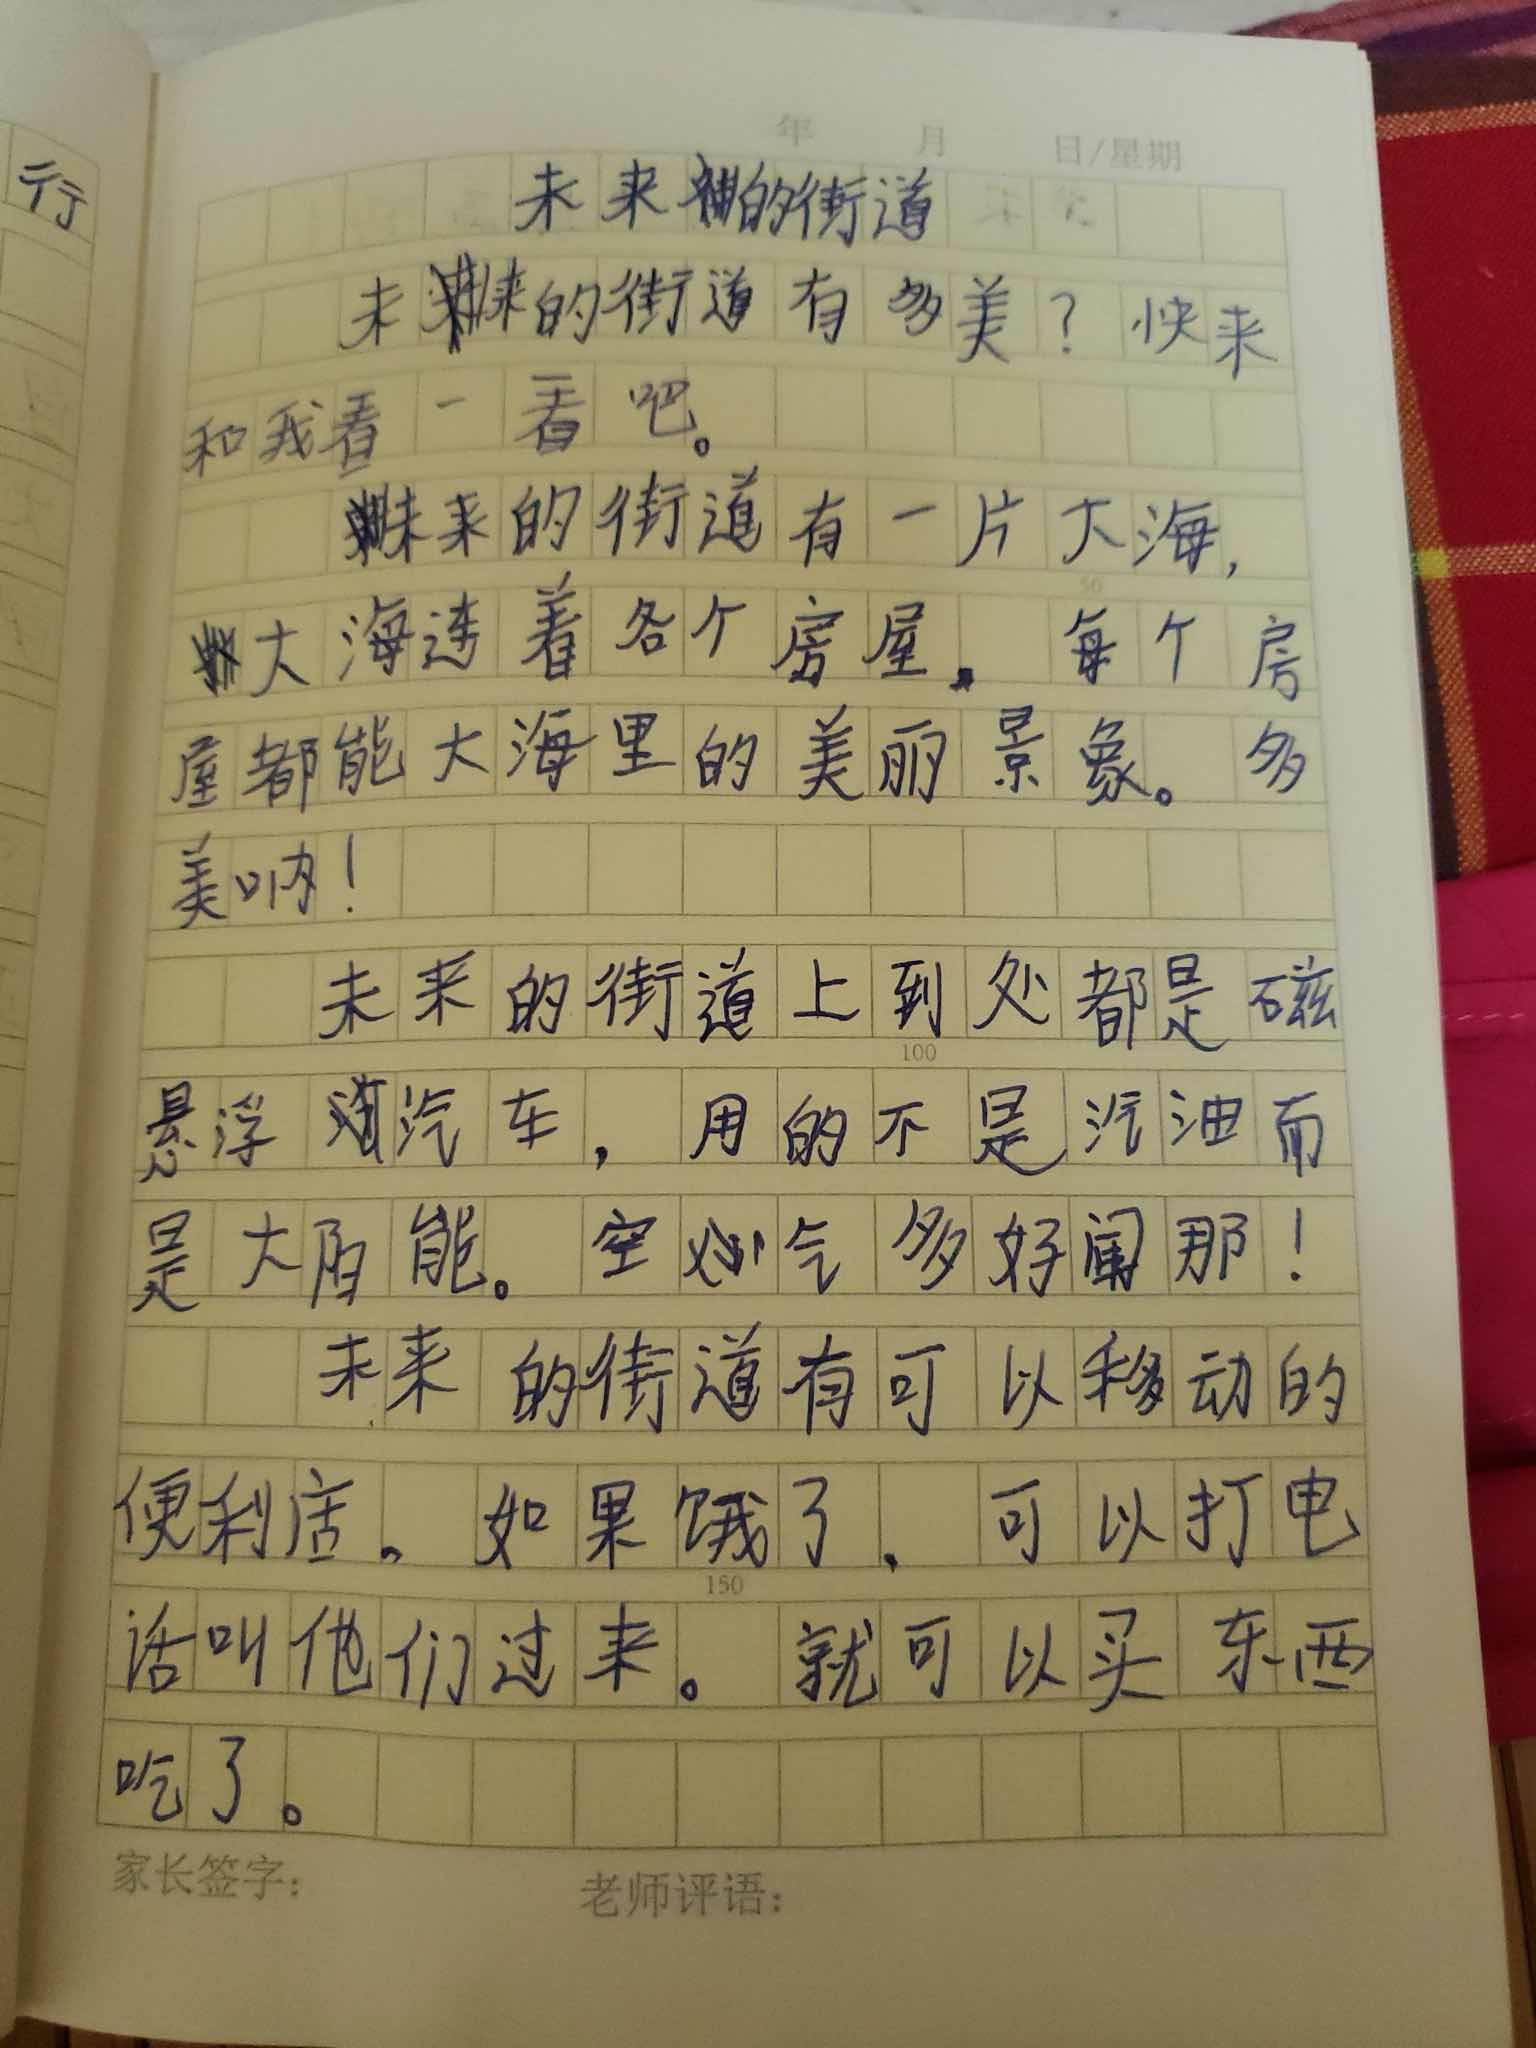 行
年 月 日/星期
未来的街道
未来的街道有多美？快来
和我看一看吧。
未来的街道有一片大海，
50
大海连着各个房屋。每个房
屋都能大海里的美丽景象。多
美呐！
未来的街道上到处都是磁
100
悬浮汽车，用的不是汽油而
是大阳能。空气多好闻那！
未来的街道有可以移动的
便利店。如果饿了，可以打电
150
话叫他们过来。就可以买东西
吃了。
家长签字：
老师评语：